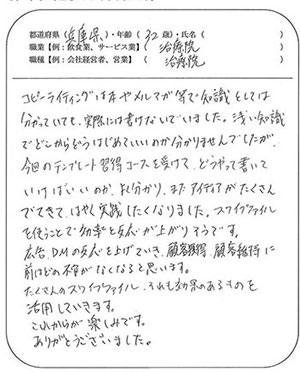 都道府県(兵庫県)・年齢(32歳)・氏名( )
職業【例:飲食業、サービス業】( 治療院 )
職種【例:会社経営者、営業】( 治療院 )
コピーライティングは本やメルマガ等で知識としては
分かっていても、実際には書けないでいました。浅い知識
でどこからどうはじめていいのか分かりませんでしたが、
今回のテンプレート習得コースを受けて、どうやって書いて
いけばいいのか、よく分かり、また アイディアがたくさん
でてきて、はやく実践したくなりました。スワイプファイル
を使うことで効率と反応が上がりそうです。
広告、DMの反応を上げていき、顧客獲得、顧客維持に
前ほどの不安がなくなると思います。
たくさんのスワイプファイル、それも効果のあるものを
活用していきます。
これからが楽しみです。
ありがとうございました。